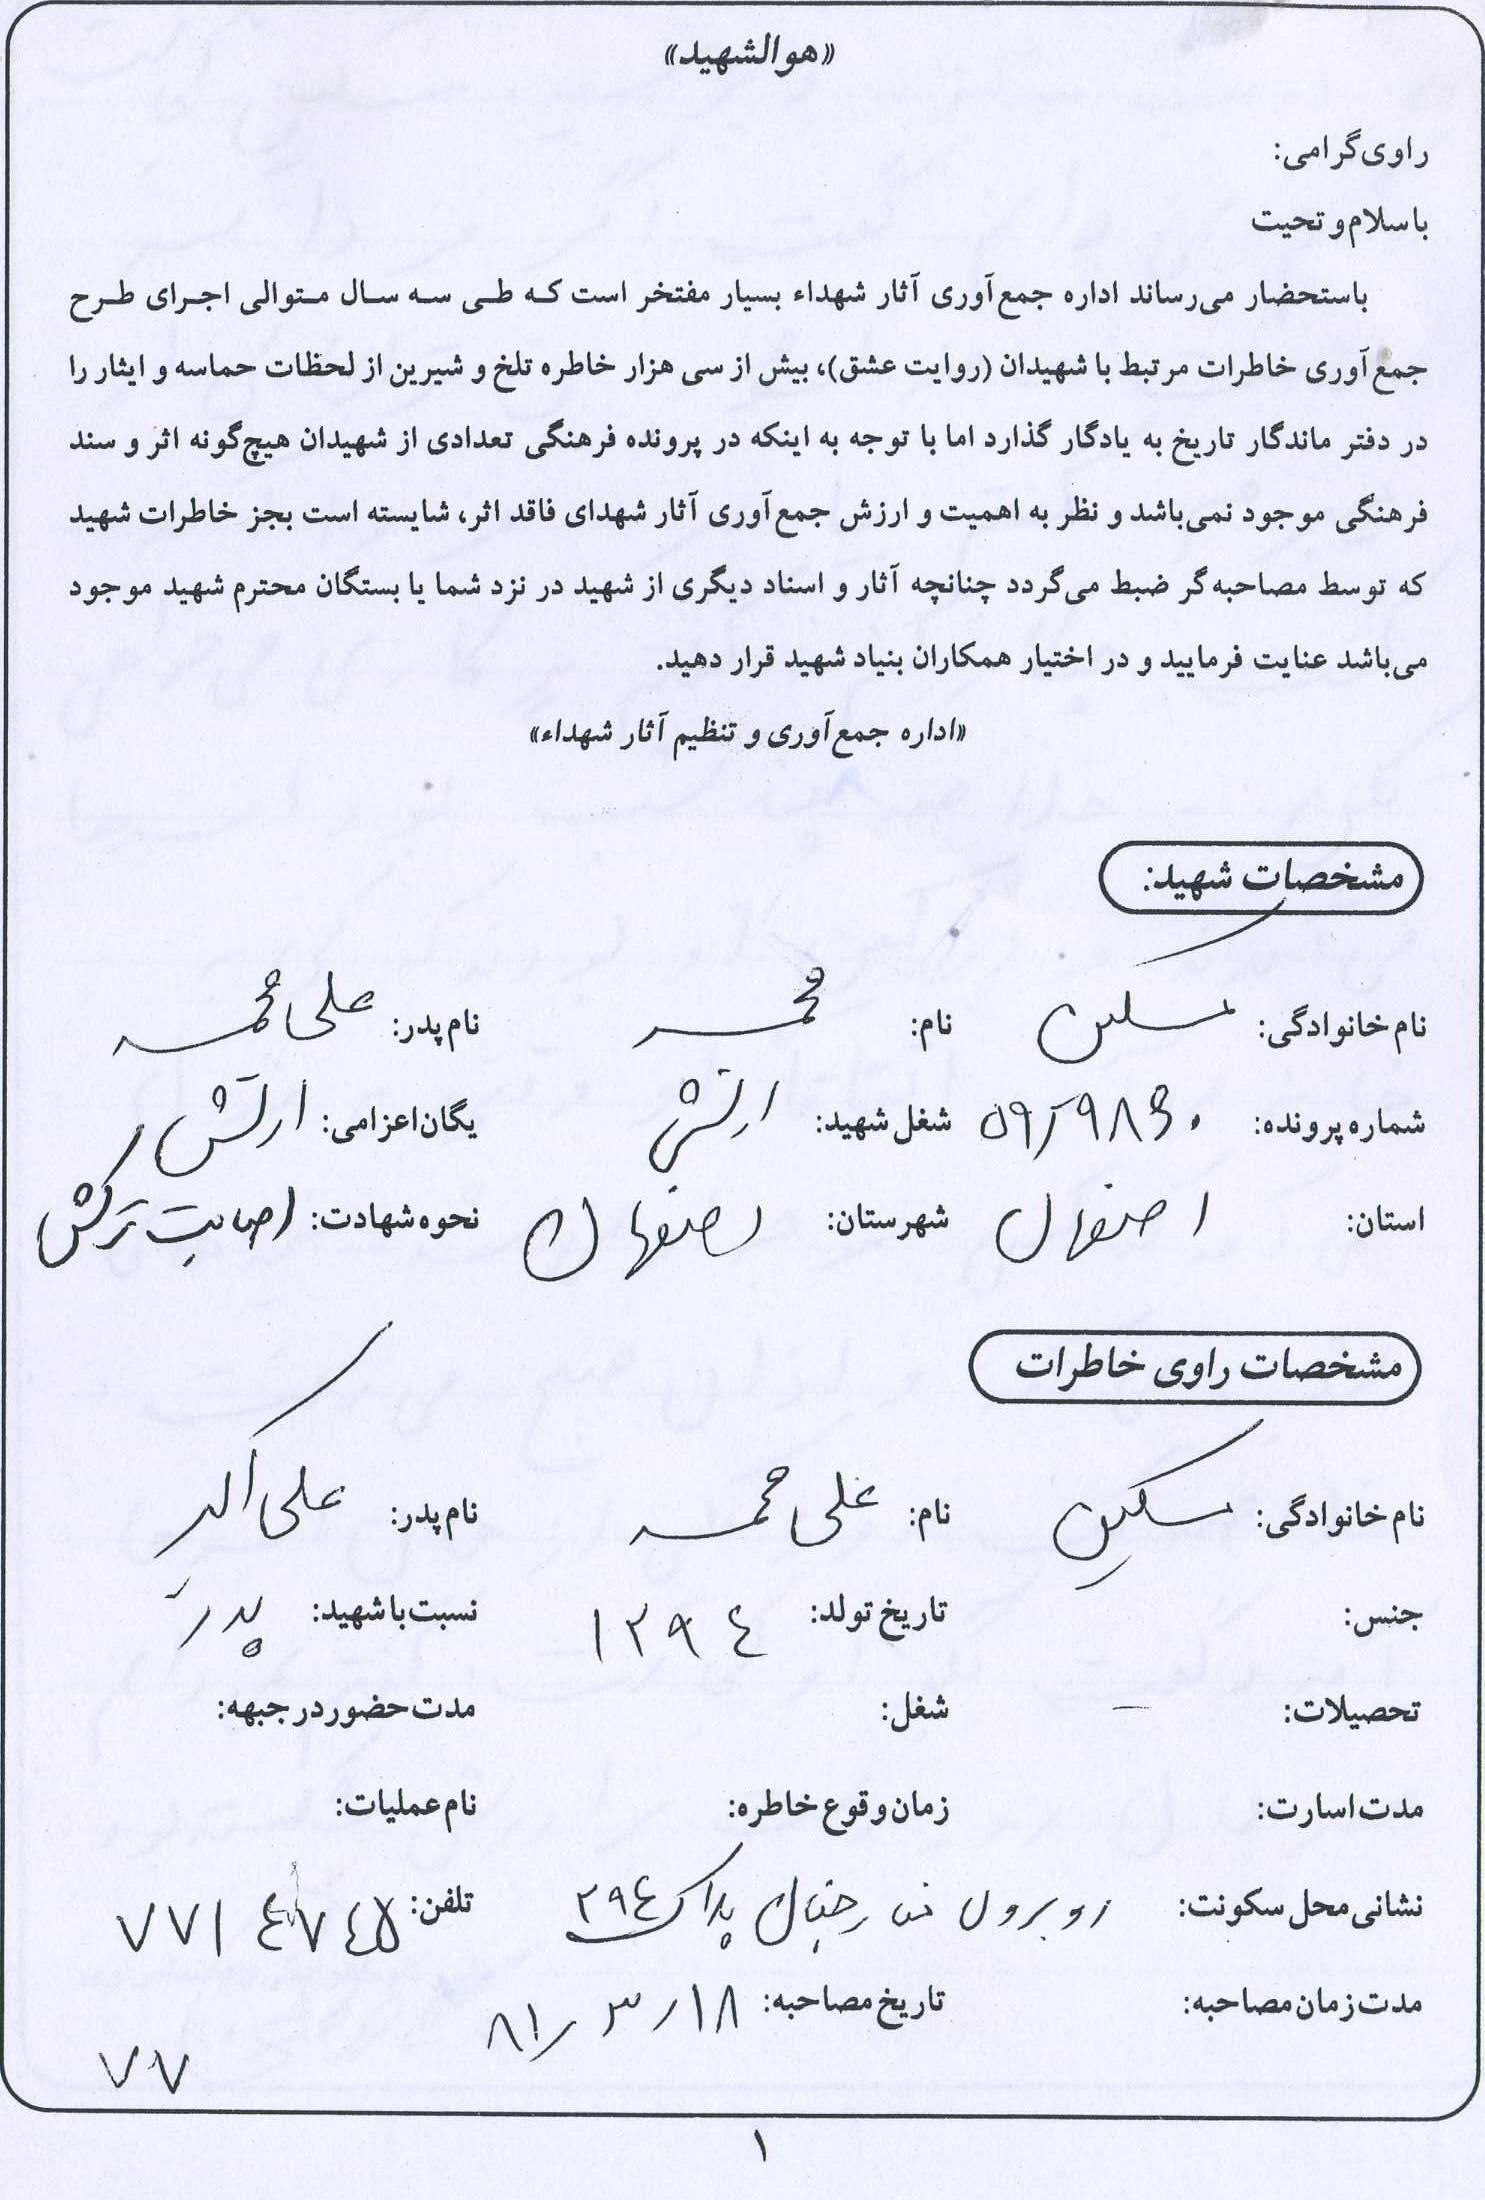 «هوالشهید»
راوی گرامی:
با سلام و تحیت
باستحضار می‌رساند اداره جمع‌آوری آثار شهداء بسیار مفتخر است که طی سه سال متوالی اجرای طرح
جمع‌آوری خاطرات مرتبط با شهیدان (روایت عشق)، بیش از سی هزار خاطره تلخ و شیرین از لحظات حماسه و ایثار را
در دفتر ماندگار تاریخ به یادگار گذارد اما با توجه به اینکه در پرونده فرهنگی تعدادی از شهیدان هیچ‌گونه اثر و سند
فرهنگی موجود نمی‌باشد و نظر به اهمیت و ارزش جمع‌آوری آثار شهدای فاقد اثر، شایسته است بجز خاطرات شهید
که توسط مصاحبه‌گر ضبط می‌گردد چنانچه آثار و اسناد دیگری از شهید در نزد شما یا بستگان محترم شهید موجود
می‌باشد عنایت فرمایید و در اختیار همکاران بنیاد شهید قرار دهید.
«اداره جمع‌آوری و تنظیم آثار شهداء»
مشخصات شهید:
نام خانوادگی: مسکین نام: محمد نام پدر: علی محمد
شماره پرونده: شغل شهید: ارتش یگان اعزامی: ارتش
استان: اصفهان شهرستان: اصفهان نحوه شهادت: اصابت ترکش
مشخصات راوی خاطرات
نام خانوادگی: مسکین نام: علی محمد نام پدر: علی اکبر
جنس: تاریخ تولد: ۱۲۹۴ نسبت با شهید: پدر
تحصیلات: – شغل: مدت حضور در جبهه:
مدت اسارت: زمان وقوع خاطره: نام عملیات:
نشانی محل سکونت: روبروی پلاک ۲۹۴ تلفن:
مدت زمان مصاحبه: تاریخ مصاحبه: ۸۱/۳/۱۸
۷۷
۱